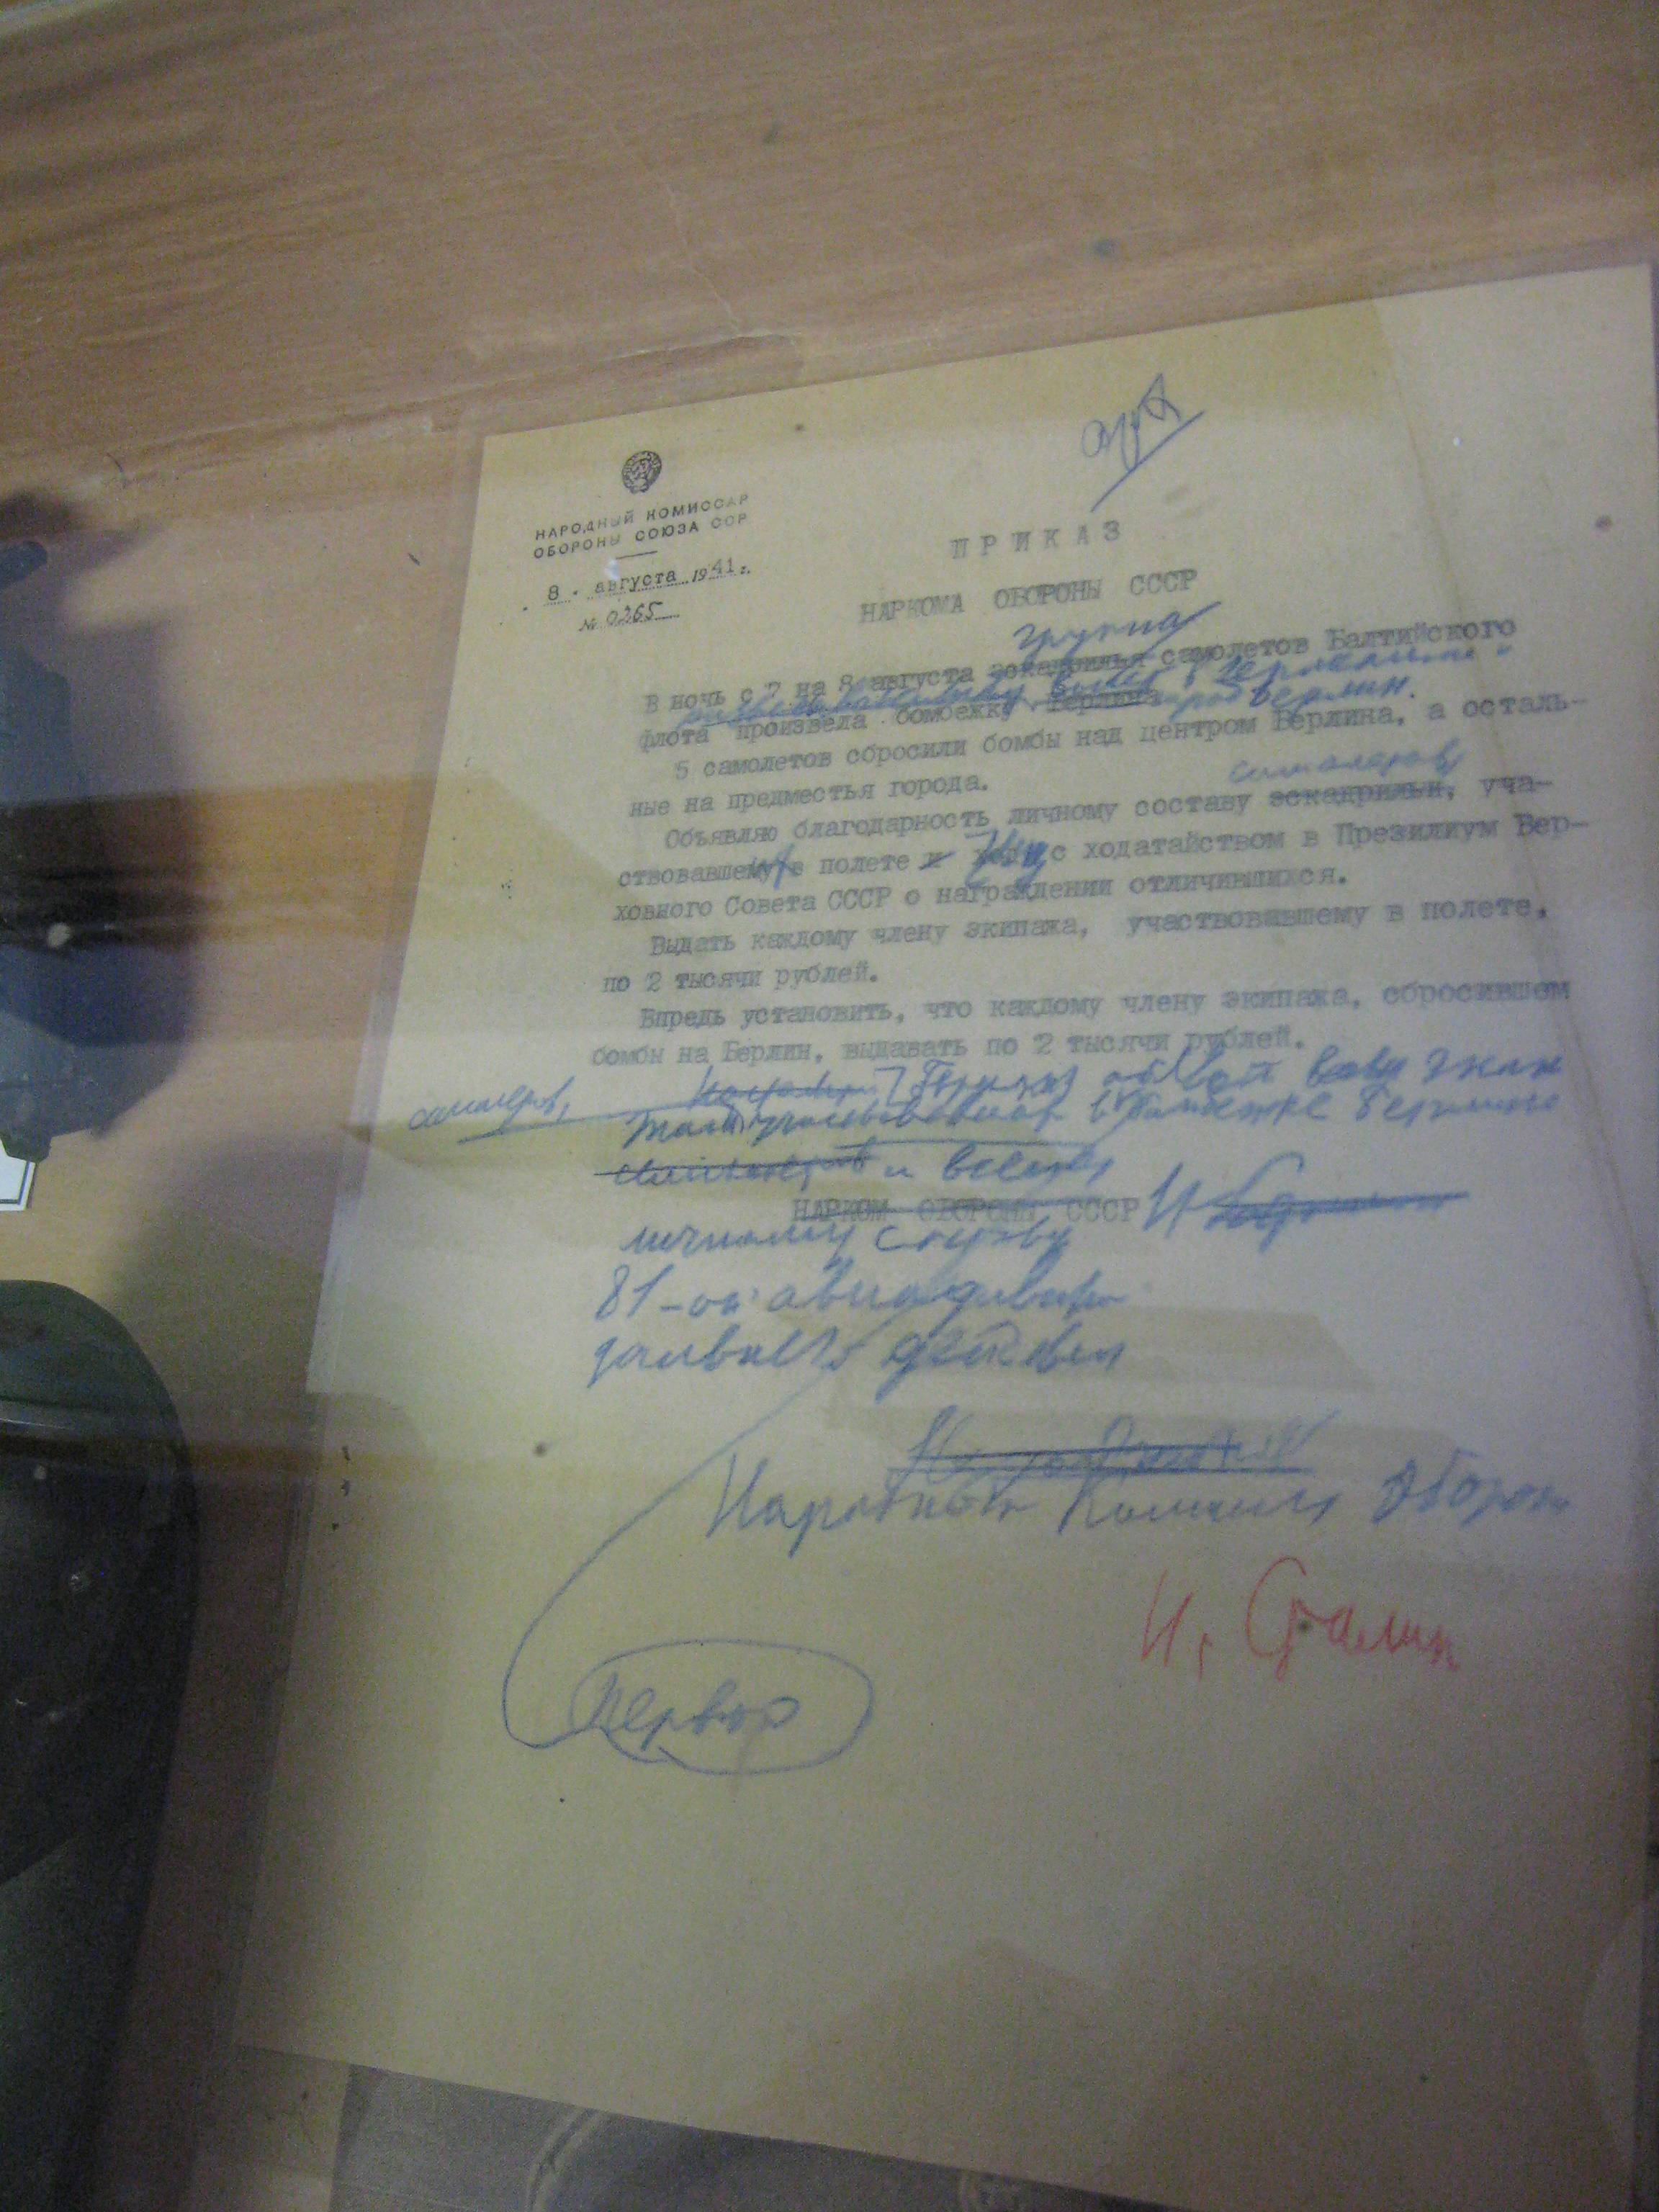 НАРОДНЫЙ КОМИССАР
ОБОРОНЫ СОЮЗА ССР
8 . августа 1941 г.
№ 0265
ПРИКАЗ
НАРКОМА ОБОРОНЫ СССР
группа
В ночь с 7 на 8 августа эскадрилья самолетов Балтийского
разведывательный полет в Германию и
флота произвела бомбежку Берлина город Берлин.
5 самолетов сбросили бомбы над центром Берлина, а осталь-
ные на предместья города.
самолетов
Объявляю благодарность личному составу эскадрильи, уча-
ствовавшему в полете и вхожу с ходатайством в Презилиум Вер-
ховного Совета СССР о награждении отличившихся.
Выдать каждому члену экипажа, участвовавшему в полете,
по 2 тысячи рублей.
Впредь установить, что каждому члену экипажа, сбросившом
бомбы на Берлин, выдавать по 2 тысячи рублей.
самолетов, Приказ объявить всему экип
участвовавшим в бомбежке Берлина
и всему
НАРКОМ ОБОРОНЫ СССР И
личному составу
81-ой авиадивизии
дальнего действия
Народный Комиссар Обороны
И. Сталин
Первое